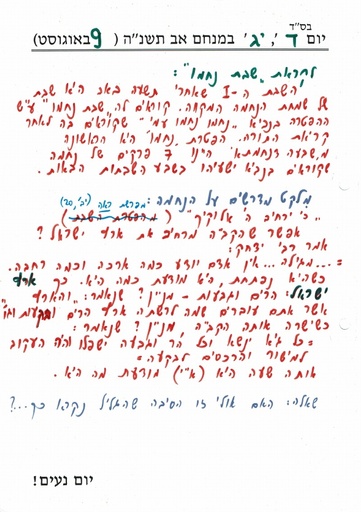 בס"ד
יום ד', יג' במנחם אב תשנ"ה ( 9 באוגוסט)
לקראת "שבת נחמו":
השבת ה-I שאחרי תשעה באב היא שבת
של שמחת הנחמה המקווה. קוראים לה "שבת נחמו" ע"ש
ההפטרה בנביא "נחמו נחמו עמי"- שקוראים בה לאחר
קריאת התורה. הפטרת "נחמו" היא הראשונה
מ"שבעה דנחמתא" היינו 7 פרקים של נחמה
שקוראים בנביא ישעיהו בשבע השבתות הבאות.
מלקט מדרשים על הנחמה: מפרשת ראה (יב', 20)
"כי ירחיב ה' אלוקיך" (מהפטרת השבת)
אפשר שהקב"ה מרחיב את ארץ ישראל?
אמר רבי יצחק:
=...מגילה... אין אדם יודע כמה ארכה וכמה רחבה.
כשהיא נפתחת, היא מודעת כמה היא. כך ארץ
ישראל: הרים וגבעות - מנין? שנאמר: "והארץ
אשר אתם עוברים שמה לרשתה ארץ הרים ובקעות וגו'"
כשישרה אותה הקב"ה, מנין? שנאמר:
=כל גיא ינשא וכל הר וגבעה ישפלו והיה העקוב
למישור והרכסים לבקעה=
אותה שעה היא (א"י) מודעת מה היא.
שאלה: האם אולי זו הסיבה שהגליל נקרא כך...?
יום נעים!